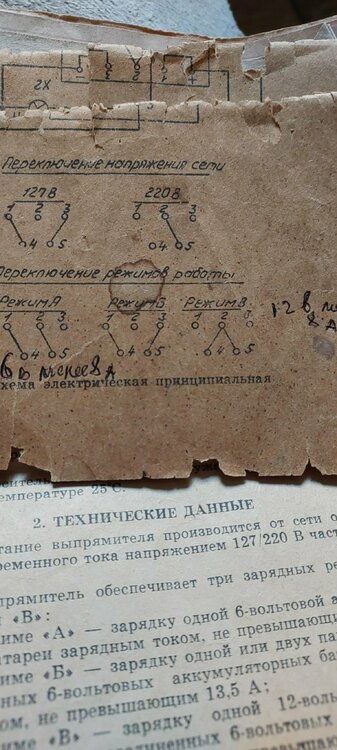 2Х
Переключение напряжения сети
127В 220В
1 2 3 1 2 3
4 5 4 5
Переключение режимов работы
Режим А Режим Б Режим В
1 2 3 1 2 3 1 2 3
4 5 4 5 4 5
12 В
8 А
6 В
8 А
хема электрическая принципиальная
емпературе 25°С.
2. ТЕХНИЧЕСКИЕ ДАННЫЕ
тание выпрямителя производится от сети о
ременного тока напряжением 127/220 В част
прямитель обеспечивает три зарядных ре
и «В»:
име «А» — зарядку одной 6-вольтовой а
тареи зарядным током, не превышающи
име «Б» — зарядку одной или двух па
нных 6-вольтовых аккумуляторных ба
ом, не превышающим 13,5 А;
ме «В» — зарядку одной 12-воль
единенных 6-вольтовых